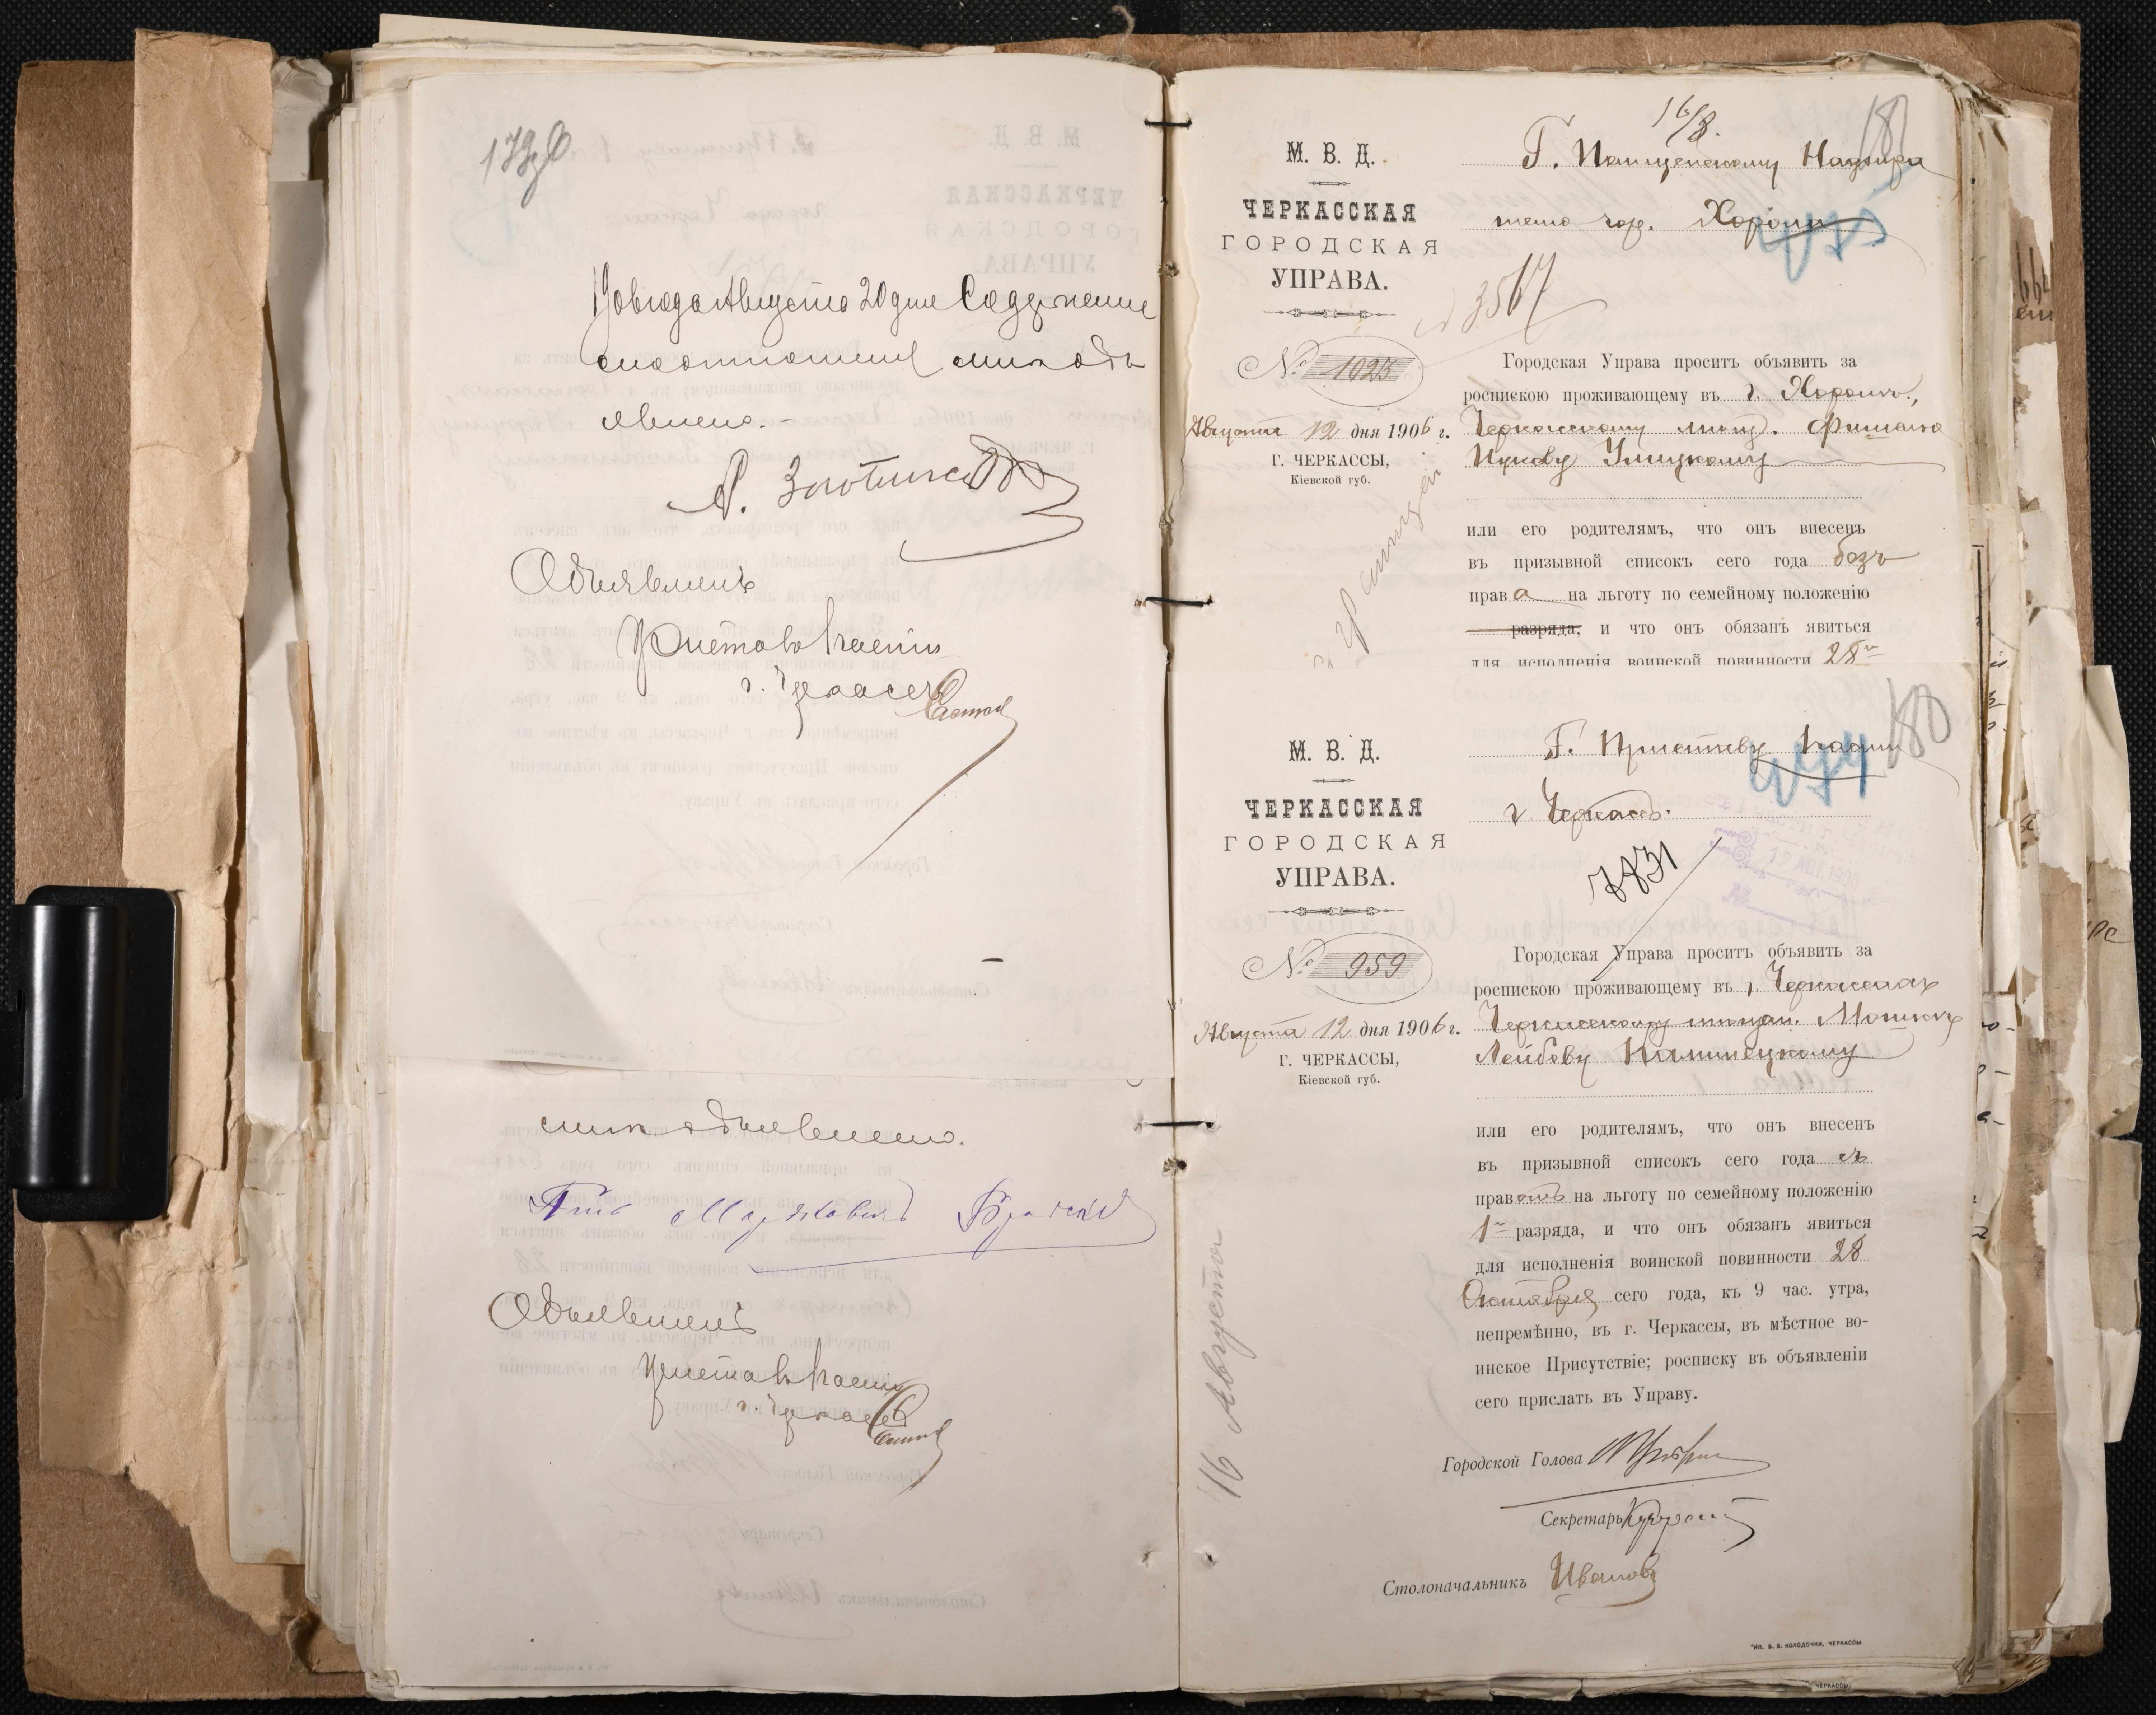 179об
1906 года Августа 20 дня Содержание
сего отношения мне объ
явлено.-
Объявилъ
Приставъ 1 части
г. Черкассъ
мне объявлено.
Объявилъ
Приставъ 1 части
г. Черкассъ
16/8.
181
М. В. Д.
ЧЕРКАССКАЯ
ГОРОДСКАЯ
УПРАВА.
№ 1025
Августа 12 дня 1906 г.
Г. ЧЕРКАССЫ,
Кіевской губ.
Г. Полицейскому Надзира
телю гор. Хорола
475
3567
Городская Управа проситъ объявить за
роспискою проживающему въ г. Хороле,
Черкасскому мѣщ.
Ицкову Улицкому
или его родителямъ, что онъ внесенъ
въ призывной списокъ сего года безъ
права на льготу по семейному положенію
разряда, и что онъ обязанъ явиться
для исполненія воинской повинности 28го
180
М. В. Д.
ЧЕРКАССКАЯ
ГОРОДСКАЯ
УПРАВА.
№ 959
Августа 12 дня 1906 г.
Г. ЧЕРКАССЫ,
Кіевской губ.
Г. Приставу 1 части
474
г. Черкассъ.
7831
12 АВГ. 1906
№
Городская Управа проситъ объявить за
роспискою проживающему въ г. Черкассахъ
Черкасскому мѣщан. Мошко
Лейбову Каминецкому
или его родителямъ, что онъ внесенъ
въ призывной списокъ сего года съ
правомъ на льготу по семейному положенію
1го разряда, и что онъ обязанъ явиться
для исполненія воинской повинности 28
Октября сего года, къ 9 час. утра,
непремѣнно, въ г. Черкассы, въ мѣстное во-
инское Присутствіе; росписку въ объявленіи
сего прислать въ Управу.
Городской Голова
Секретарь
Столоначальникъ Иванов
16 Августа
ТИП. В. В. КОЛОДОЧКИ, ЧЕРКАССЫ
ЧЕРКАССЫ